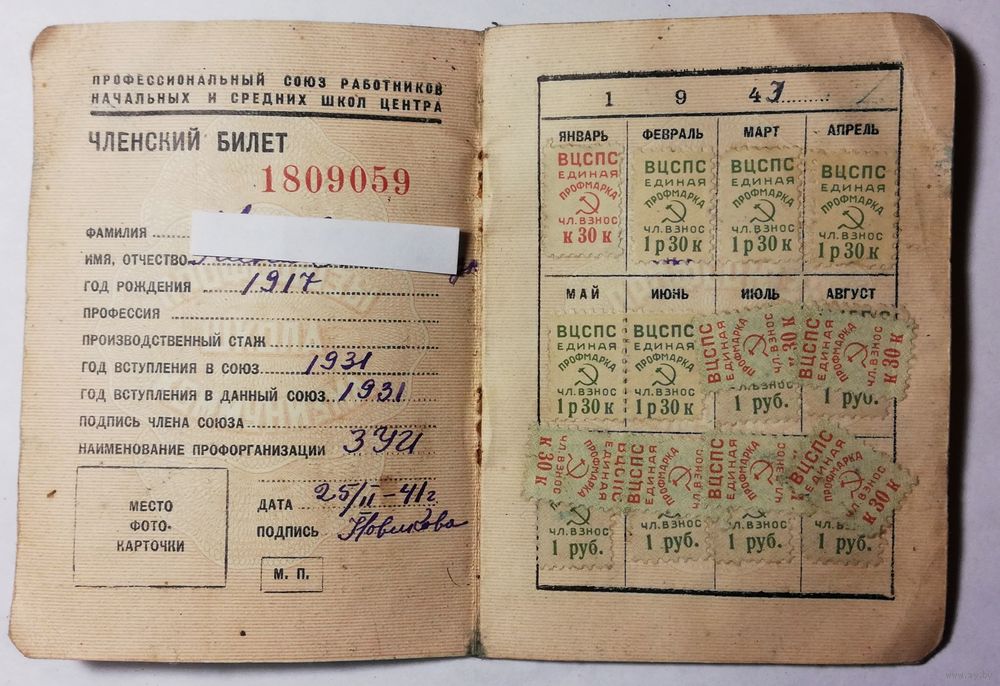 ПРОФЕССИОНАЛЬНЫЙ СОЮЗ РАБОТНИКОВ
НАЧАЛЬНЫХ И СРЕДНИХ ШКОЛ ЦЕНТРА
ЧЛЕНСКИЙ БИЛЕТ
1809059
ФАМИЛИЯ
ИМЯ, ОТЧЕСТВО
ГОД РОЖДЕНИЯ 1917
ПРОФЕССИЯ
ПРОИЗВОДСТВЕННЫЙ СТАЖ
ГОД ВСТУПЛЕНИЯ В СОЮЗ 1931
ГОД ВСТУПЛЕНИЯ В ДАННЫЙ СОЮЗ 1931
ПОДПИСЬ ЧЛЕНА СОЮЗА
НАИМЕНОВАНИЕ ПРОФОРГАНИЗАЦИИ ЗУИ
МЕСТО
ФОТО-
КАРТОЧКИ
ДАТА 25/II-41г
ПОДПИСЬ Новикова
М. П.
1 9 4
ЯНВАРЬ ФЕВРАЛЬ МАРТ АПРЕЛЬ
ВЦСПС ВЦСПС ВЦСПС ВЦСПС
ЕДИНАЯ ЕДИНАЯ ЕДИНАЯ ЕДИНАЯ
ПРОФМАРКА ПРОФМАРКА ПРОФМАРКА ПРОФМАРКА
ЧЛ. ВЗНОС ЧЛ. ВЗНОС ЧЛ. ВЗНОС ЧЛ. ВЗНОС
к 30 к 1 р 30 к 1 р 30 к 1 р 30 к
МАЙ ИЮНЬ ИЮЛЬ АВГУСТ
ВЦСПС ВЦСПС ВЦСПС ВЦСПС
ЕДИНАЯ ЕДИНАЯ ЕДИНАЯ ЕДИНАЯ
ПРОФМАРКА ПРОФМАРКА ПРОФМАРКА ПРОФМАРКА
ЧЛ. ВЗНОС ЧЛ. ВЗНОС ЧЛ. ВЗНОС ЧЛ. ВЗНОС
к 30 к к 30 к
ЧЛ. ВЗНОС ЧЛ. ВЗНОС
1 р 30 к 1 р 30 к 1 руб. 1 руб.
к 30 к ЧЛ. ВЗНОС ПРОФМАРКА ЕДИНАЯ ВЦСПС
ВЦСПС ЕДИНАЯ ПРОФМАРКА ЧЛ. ВЗНОС
ВЦСПС ЕДИНАЯ ПРОФМАРКА ЧЛ. ВЗНОС
ВЦСПС ЕДИНАЯ ПРОФМАРКА ЧЛ. ВЗНОС к 30 к
ЧЛ. ВЗНОС ЧЛ. ВЗНОС ЧЛ. ВЗНОС ЧЛ. ВЗНОС
1 руб. 1 руб. 1 руб. 1 руб.
www.ay.by